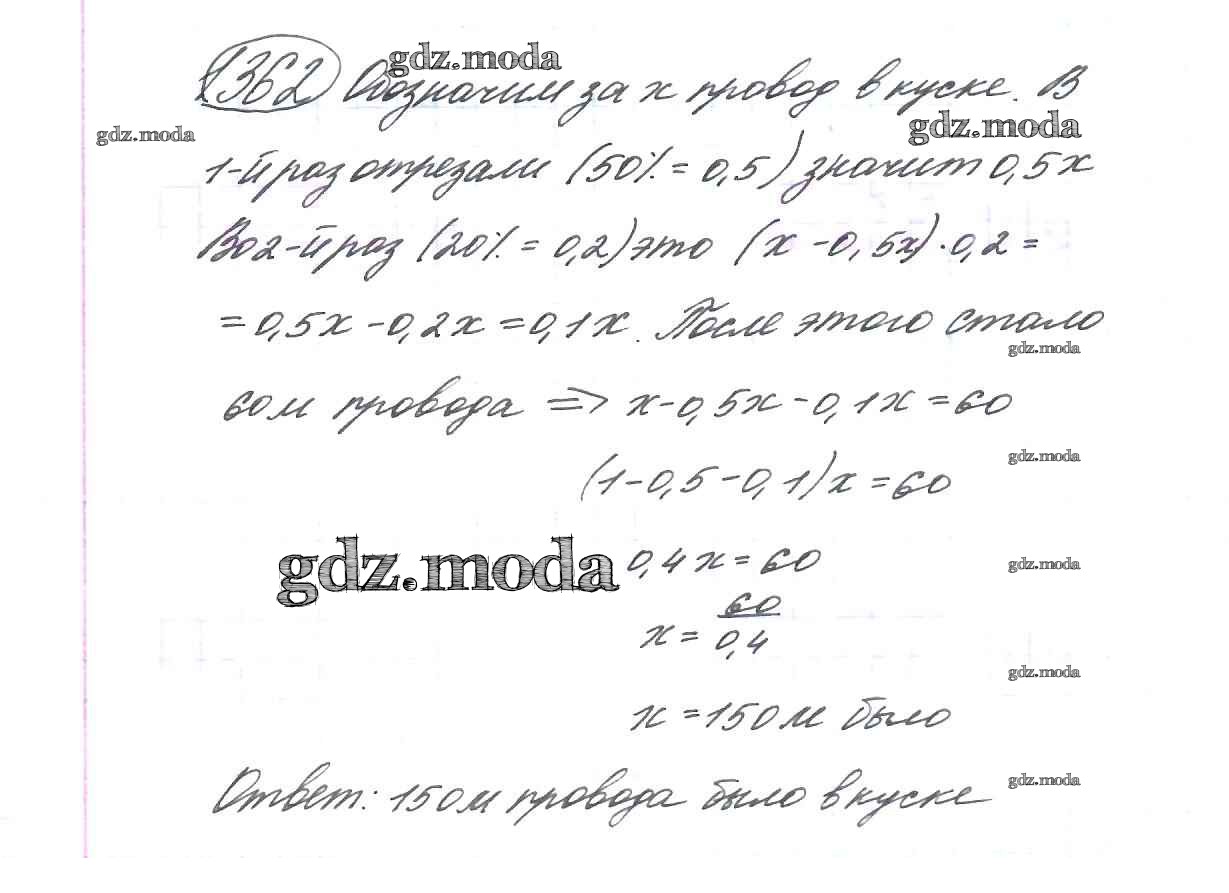 1362 Обозначим за х провод в куске. В
gdz.moda
gdz.moda
gdz.moda
1-й раз отрезали (50% = 0,5) значит 0,5х
Во 2-й раз (20% = 0,2) это (х - 0,5х) · 0,2 =
= 0,5х - 0,2х = 0,1х. После этого стало
gdz.moda
60м провода => х - 0,5х - 0,1х = 60
gdz.moda
(1 - 0,5 - 0,1)х = 60
gdz.moda
0,4х = 60
gdz.moda
х = 60/0,4
gdz.moda
х = 150м было
gdz.moda
Ответ: 150м провода было в куске